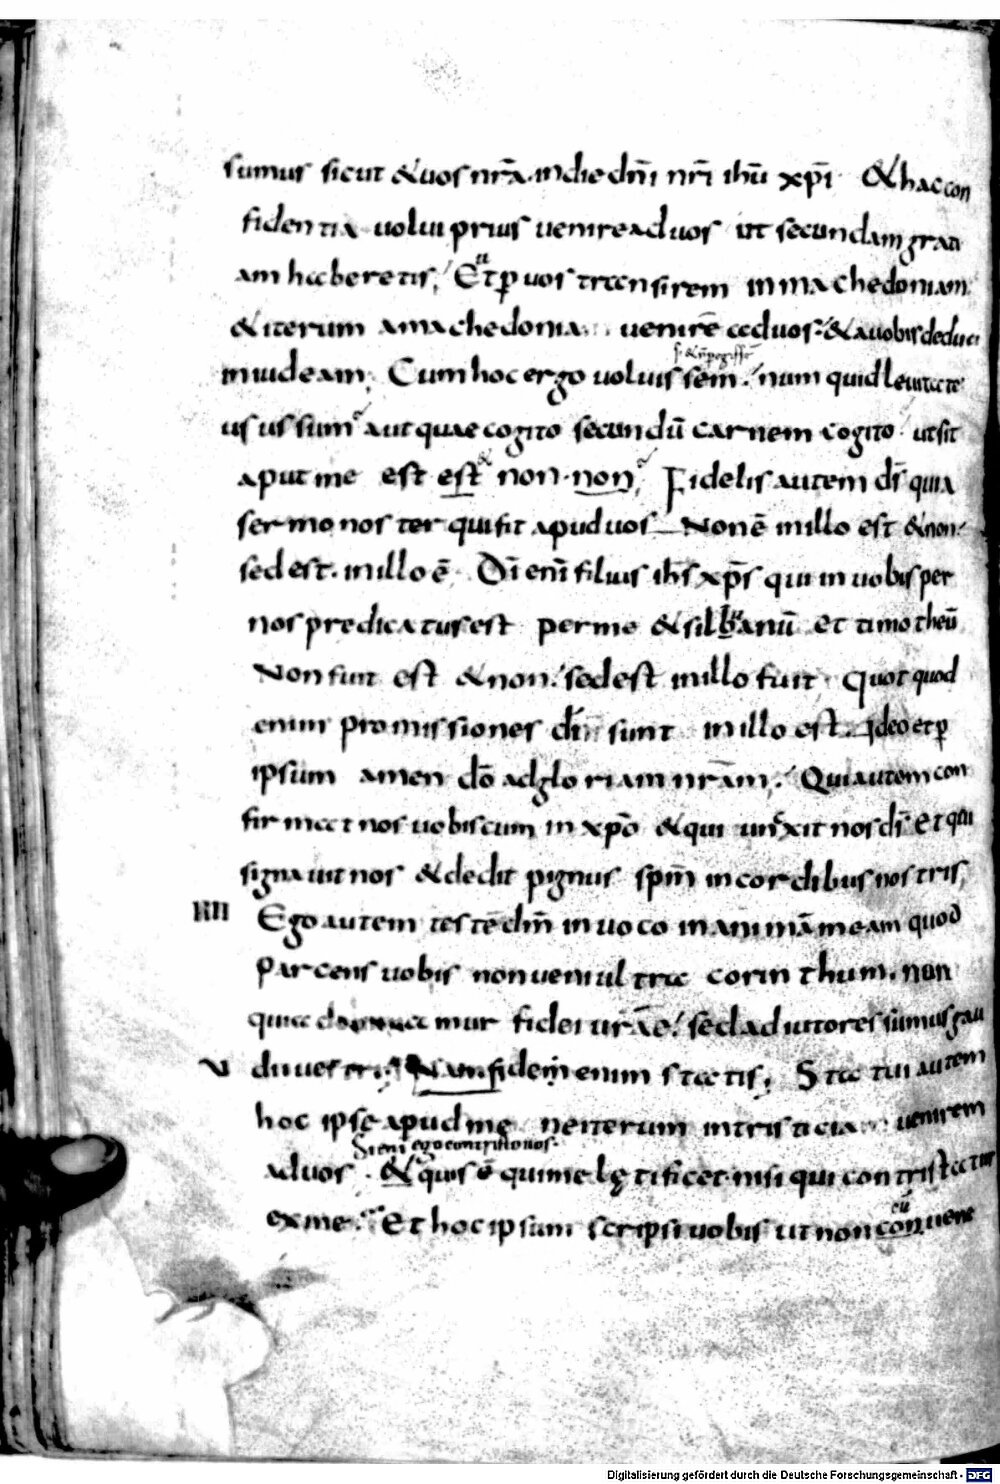 sumus sicut & uos nr̄a. in die dn̄i nr̄i ihū xp̄i & hac con
fidentia uolui prius uenire ad uos ut secundam grati
am haberetis; Et p uos transirem in machedoniam
& iterum a machedonia uenirē ad uos. & a uobis deduci
in iudeam; Cum hoc ergo uoluissem. num quid leuitate
usus sum aut quae cogito secundū carnem cogito ut sit
aput me est est & non non; Fidelis autem ds̄ quia
sermo noster qui fit apud uos Non ē in illo est & non
sed est. in illo ē. Dī enī filius ihs̄ xp̄s qui in uobis per
nos predicatus est per me & silbanū et timotheū
Non fuit est & non. sed est in illo fuit. Quot quod
enim promissiones dī sunt in illo est. Ideo et p
ipsum amen dō ad gloriam nrām. Qui autem con
firmat nos uobiscum in xp̄o & qui unxit nos ds̄ et qui
signauit nos & dedit pignus sp̄m in cordibus nostris;
IIII Ego autem testē dm̄ in uoco in animā meam quod
parcens uobis non ueni ultra corinthum. non
quia mur fidei urāe. sed adiutores sumus gau
V dii uestri Nam fidem enim statis; Statui autem
hoc ipse apud me ne iterum in tristicia uenirem
Si eni ego contristo uos
ad uos. & quis ē qui me lętificet. nisi qui contristatur
eū
ex me. Et hoc ipsum scripsi uobis ut non con uene
Digitalisierung gefördert durch die Deutsche Forschungsgemeinschaft - DFG